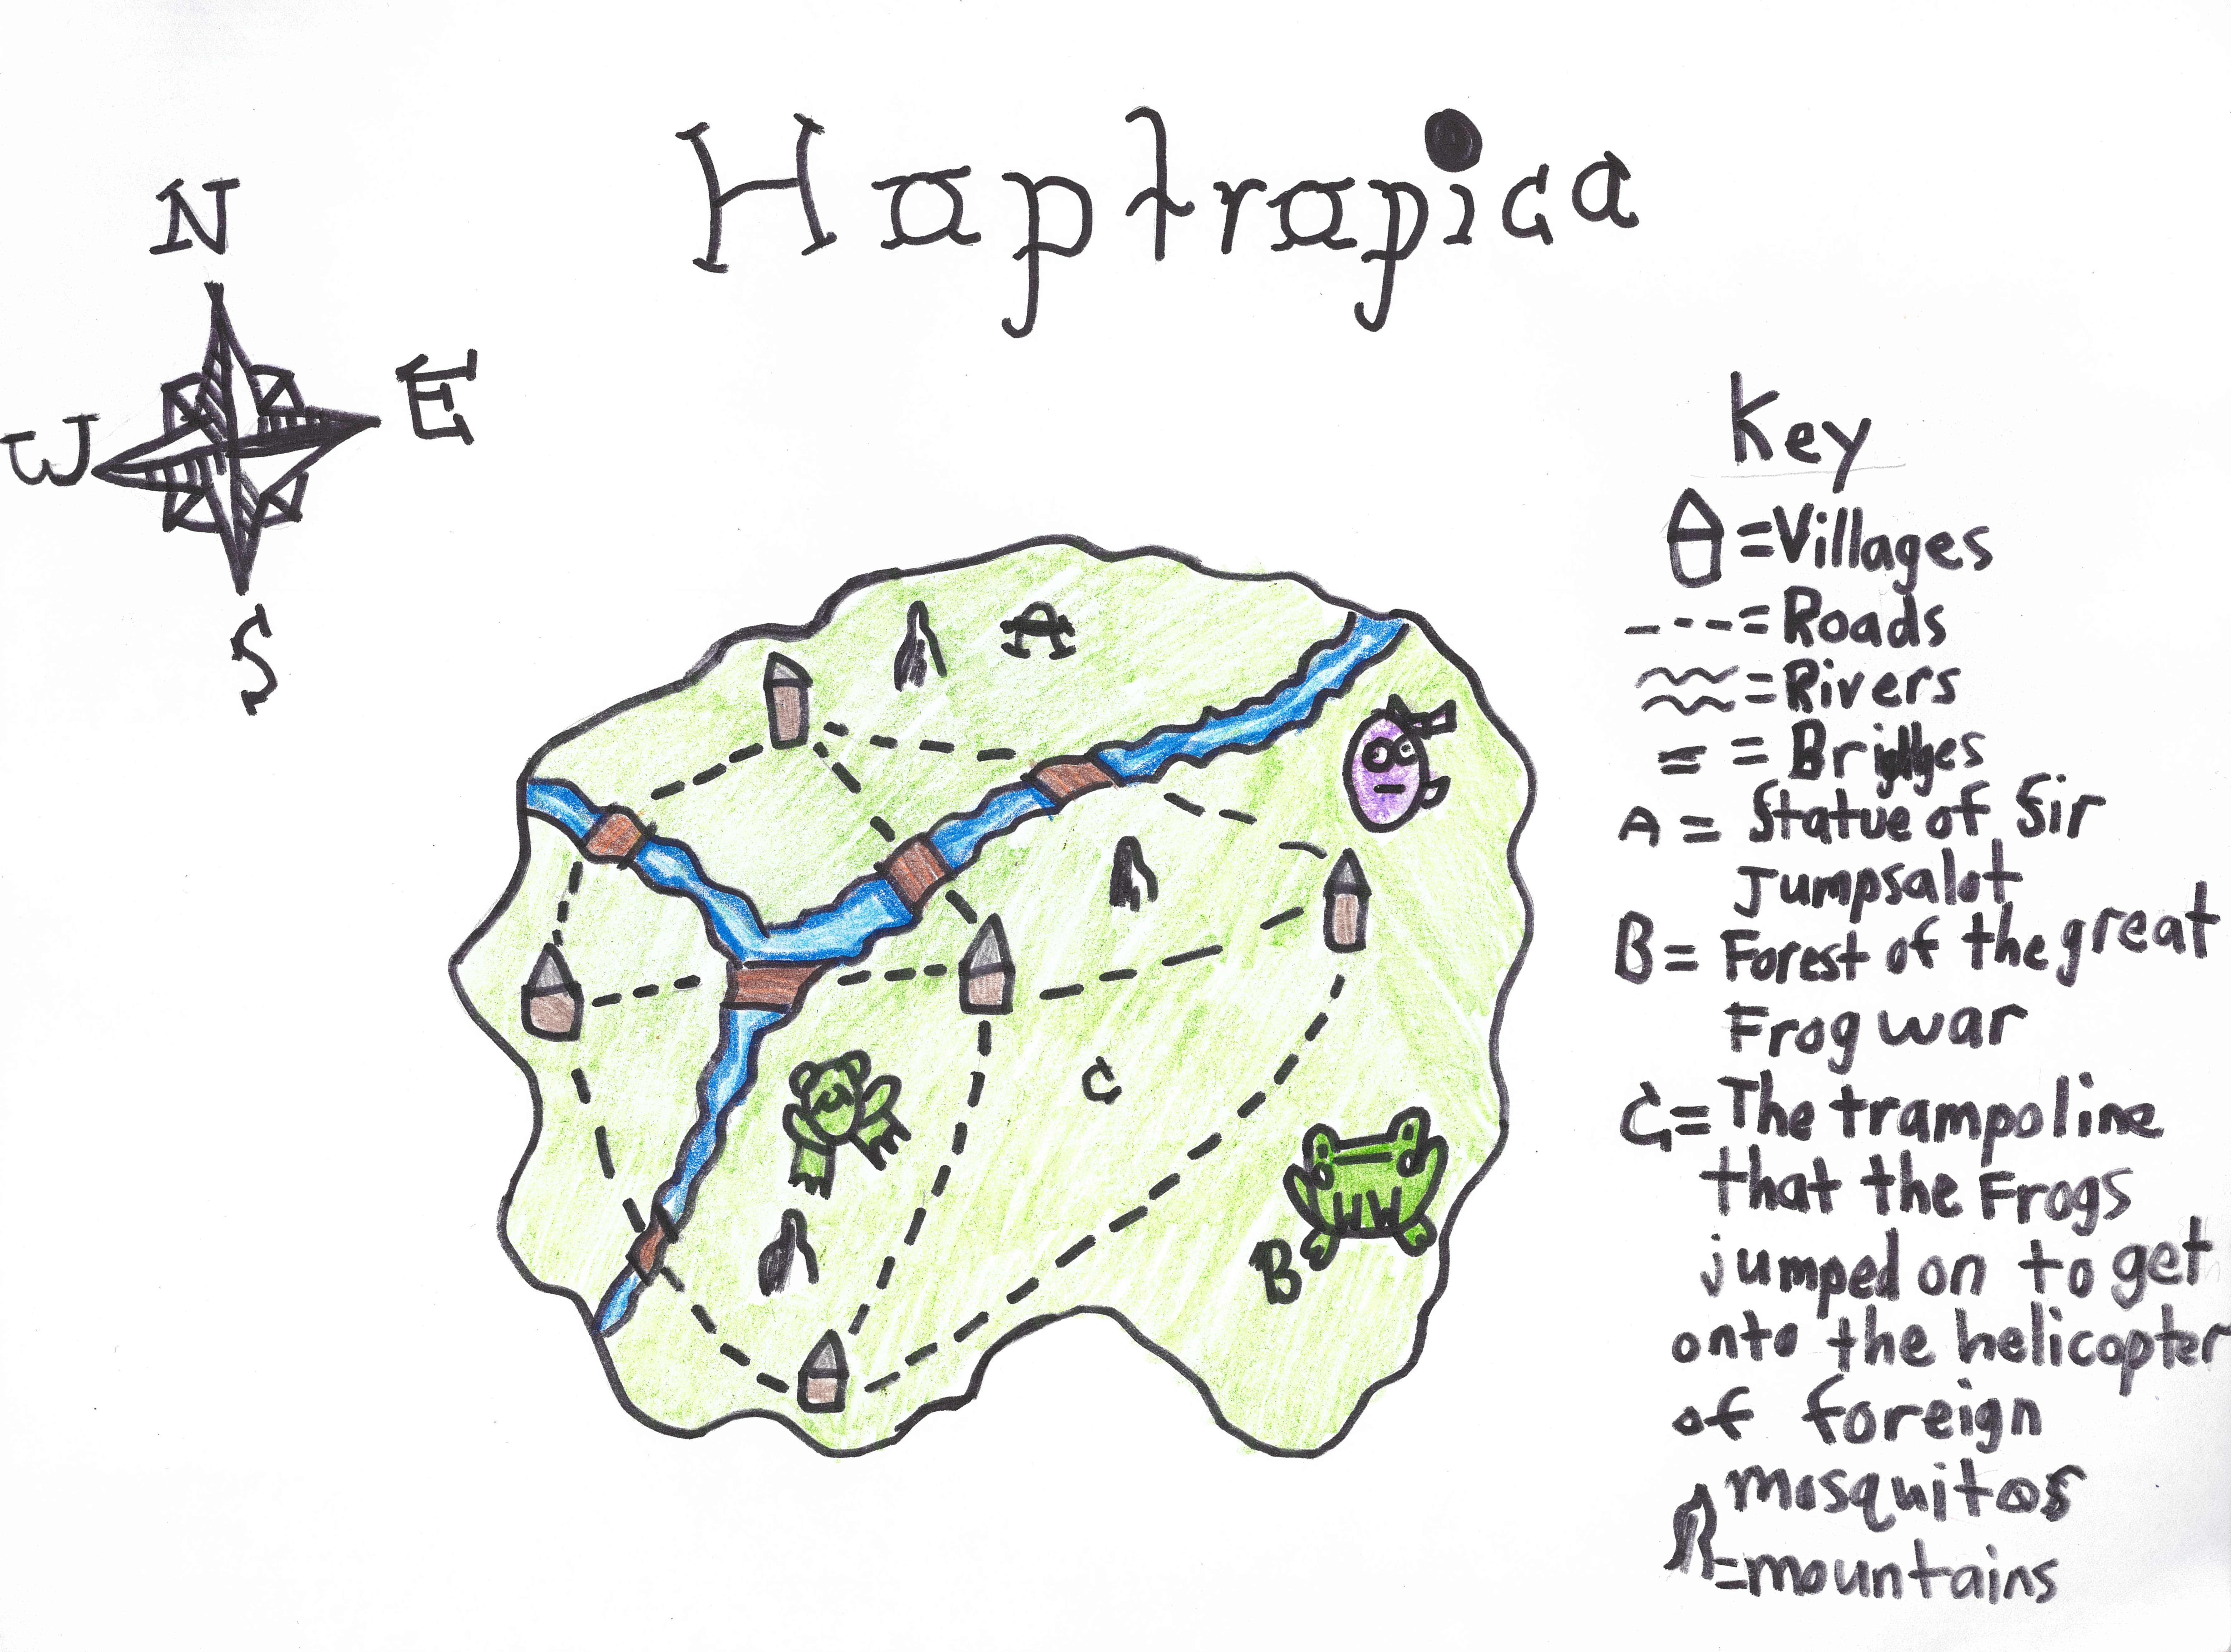 Hoptropica
N
E
W
S
Key
=Villages
=Roads
=Rivers
= = Bridges
A = Statue of Sir
Jumpsalot
B = Forest of the great
Frog war
C = The trampoline
that the Frogs
jumped on to get
onto the helicopter
of foreign
mosquitos
=mountains
A
C
B